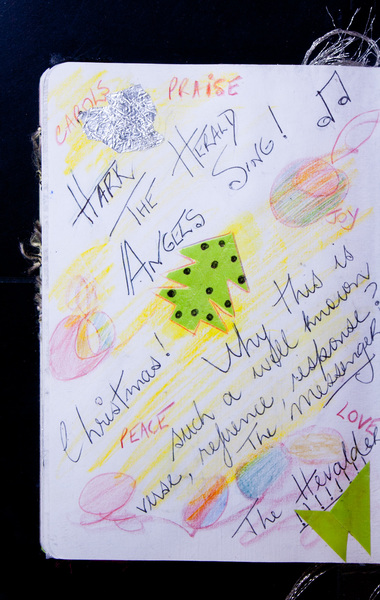 CAROLS
PRAiSE
HARK
THE HERALD
ANGELS SING!
JOY
Christmas!
Why this is
such a well known
verse, refrence, response?
The messenger
PEACE
LOVE
The Heralder